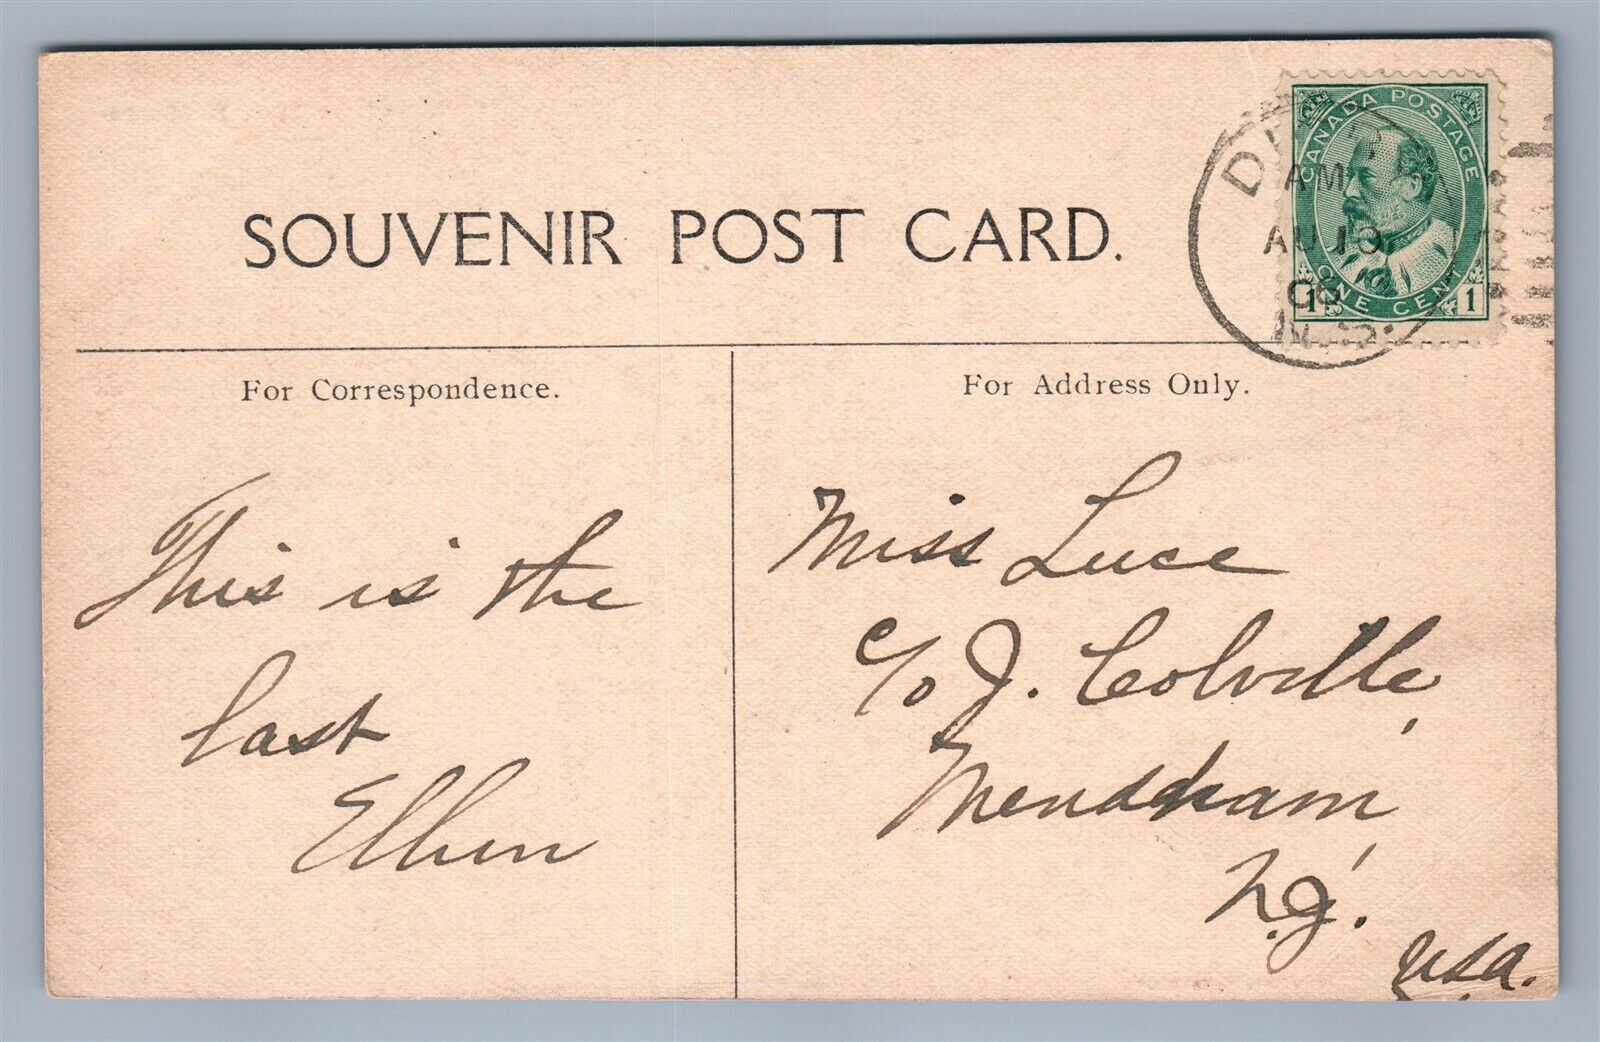 SOUVENIR POST CARD.
CANADA POSTAGE
ONE CENT
1 1
AM
AU 10
06
N.S.
For Correspondence.
This is the
last
Ellen
For Address Only.
Miss Luce
c/o J. Colville,
Mendham,
N.J.
USA.